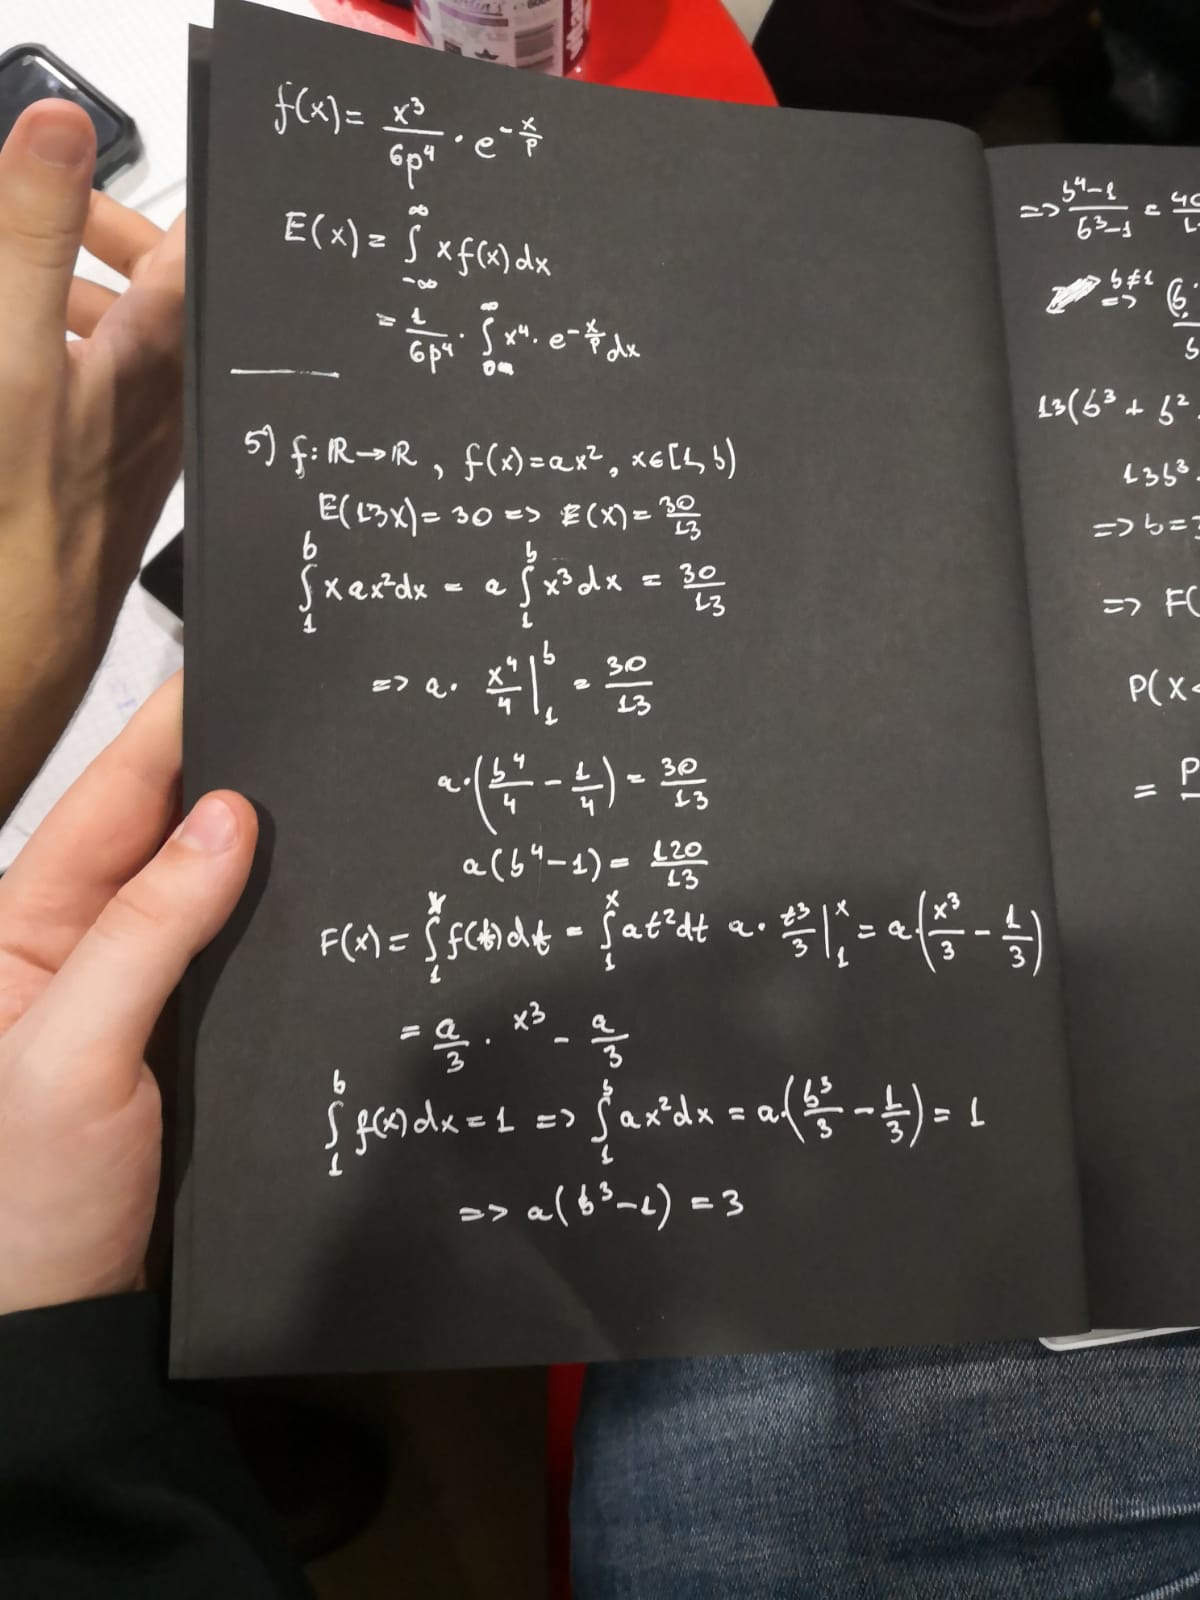 f(x) = x³/6p⁴ · e^(-x/p)
E(x) = ∫_{-∞}^{∞} x f(x) dx
= 1/6p⁴ · ∫_{0}^{∞} x⁴ · e^(-x/p) dx
5) f: ℝ → ℝ, f(x) = ax², x ∈ [1, b)
E(13X) = 30 => E(X) = 30/13
∫_{1}^{b} x ax² dx = a ∫_{1}^{b} x³ dx = 30/13
=> a · x⁴/4 |_{1}^{b} = 30/13
a · (b⁴/4 - 1/4) = 30/13
a(b⁴ - 1) = 120/13
F(x) = ∫_{1}^{x} f(t) dt = ∫_{1}^{x} at² dt a · t³/3 |_{1}^{x} = a(x³/3 - 1/3)
= a/3 · x³ - a/3
∫_{1}^{b} f(x) dx = 1 => ∫_{1}^{b} ax² dx = a(b³/3 - 1/3) = 1
=> a(b³ - 1) = 3
=> b⁴-1/b³-1 =
b≠1 =>
13(b³ + b²
13b³
=> b =
=> F(
P(X <
= P